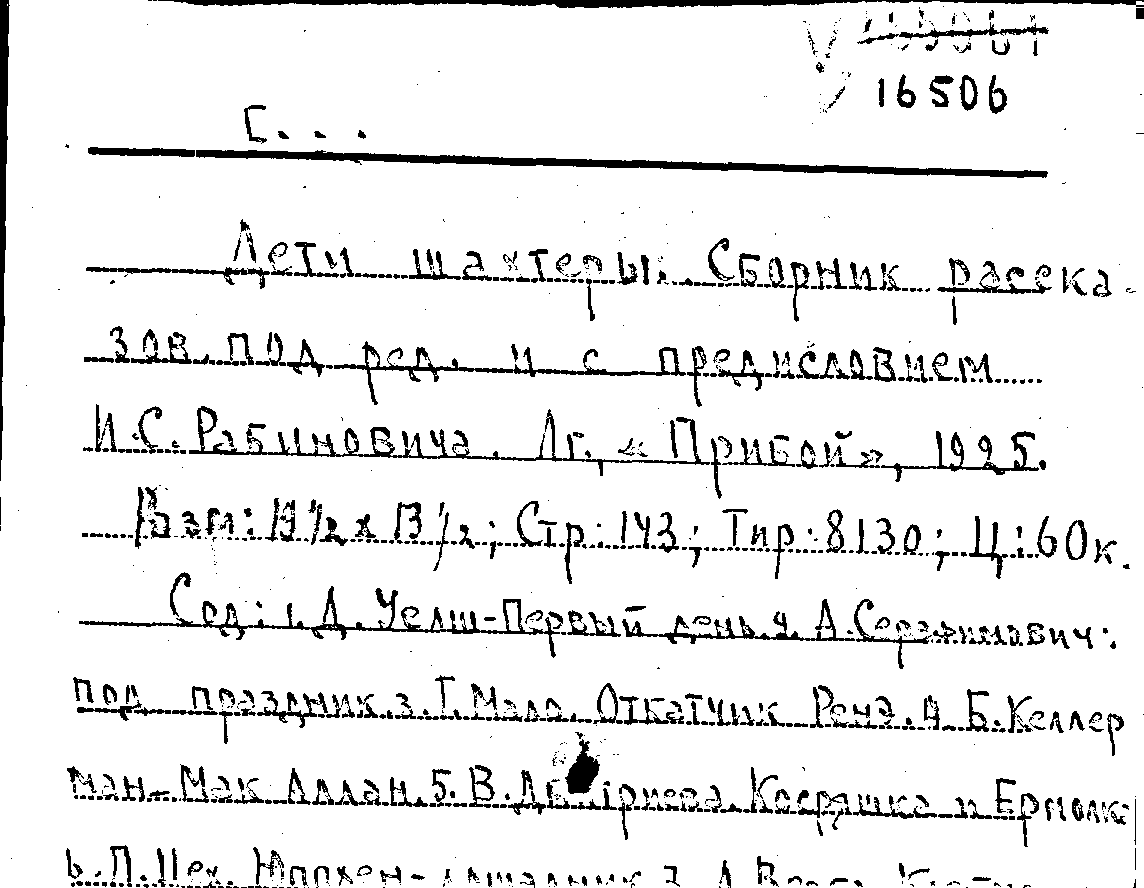 16506
Дети шахтеры. Сборник расска-
зов. под ред. и с предисловием
И.С. Рабиновича. Лг., «Прибой», 1925.
Взм: 19 1/2 х 13 1/2; Стр: 143; Тир: 8130; Ц: 60к.
Сод: 1. Д. Уелш-Первый день. 2. А. Серафимович:
под праздник. 3. Г. Мало. Откатчик Ренэ. 4 Б. Келлер
ман-Мак Аллан. 5. В. Дмитриева. и Ермолка
6. П.